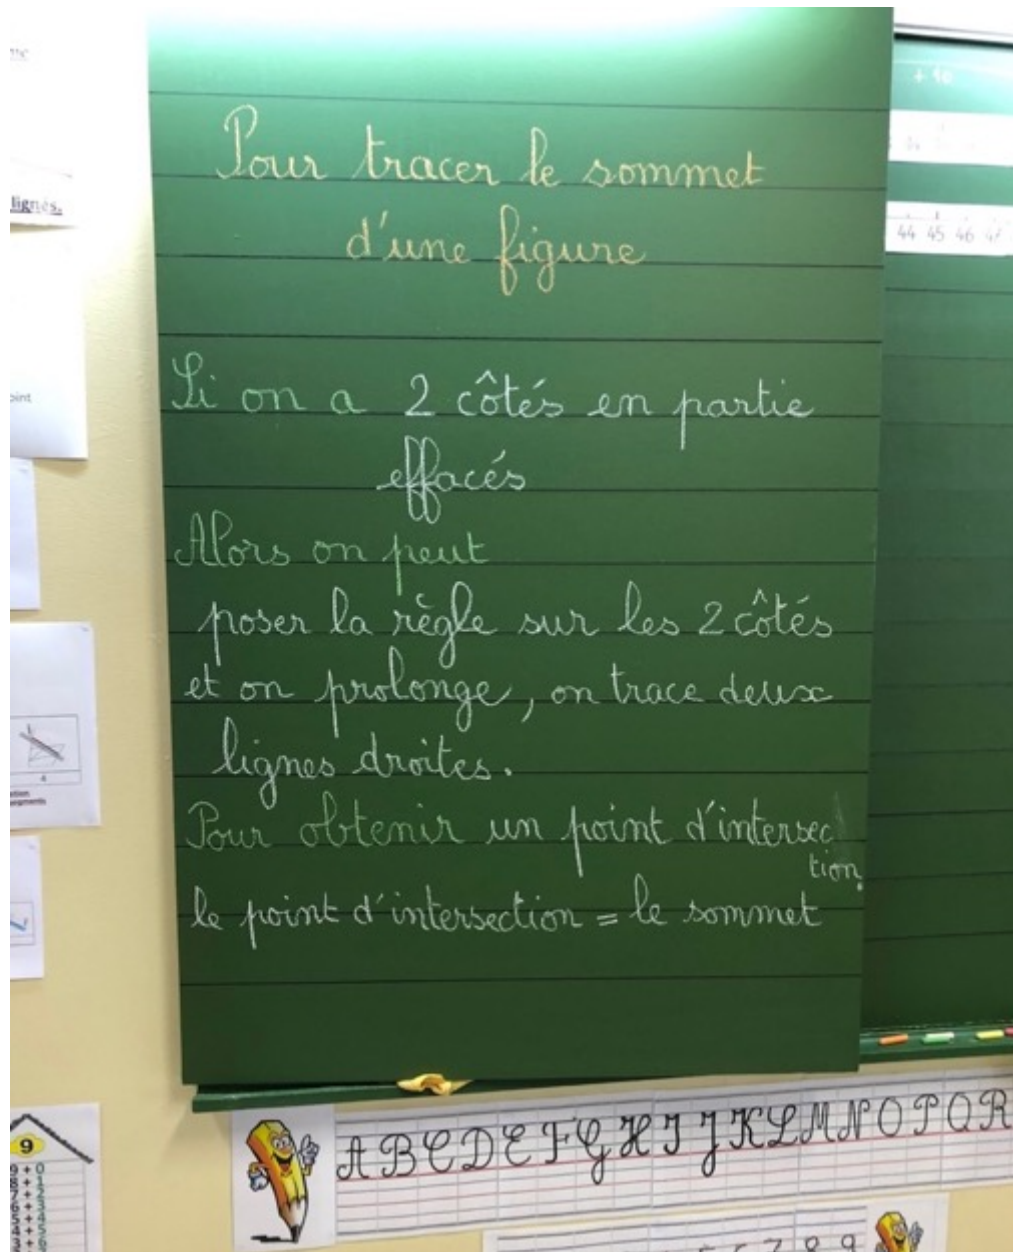 Pour tracer le sommet
d'une figure
Si on a 2 côtés en partie
effacés
Alors on peut
poser la règle sur les 2 côtés
et on prolonge, on trace deux
lignes droites.
Pour obtenir un point d'intersec
tion.
le point d'intersection = le sommet
lignés.
oint
4
+ 10
44 45 46
9
A B C D E F G H I J K L M N O P Q R
6 7 8 9